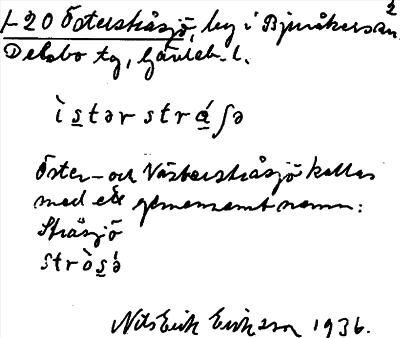 2
+20 Österstråsjö, by i Bjuråkers sn.
Delsbo tg, Gävleb. l.
ìs̲tər strá̲ʃə
Öster- och Västerstråsjö kallas
med ett gemensamt namn:
Stråsjö
stròs̲ə́
Nils Erik Eriksson 1936.